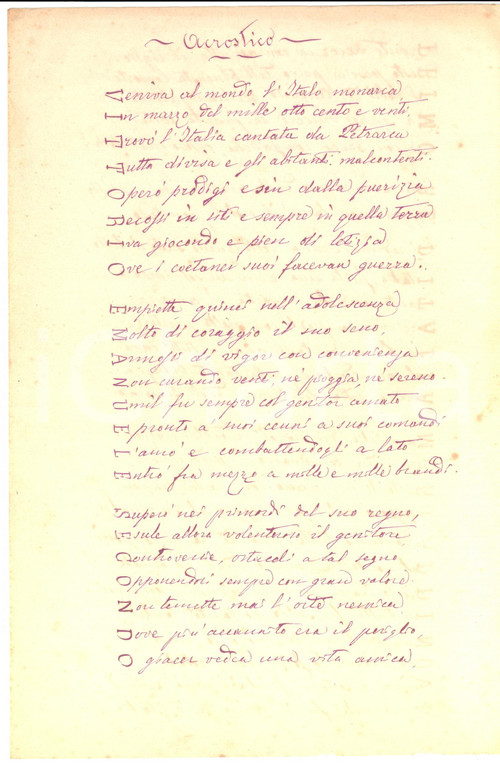 Acrostico
Veniva al mondo l'Italo monarca
In marzo del mille otto cento e venti.
Trovò l'Italia cantata da Petrarca
Tutta divisa e gli abitanti malcontenti.
Operò prodigi e sin dalla puerizia
Recossi in siti e sempre in quella terra
Iva giocondo e pien di letizia
Ove i coetanei suoi facevan guerra.
Empiette quinci nell'adolescenza
Molto di coraggio il suo seno,
Armossi di vigor con convenienza
Non curando venti, nè pioggia, nè sereno.
Umil fu sempre col genitor amato
E pronto a' suoi cenni a suoi comandi
L'amò e combattendogli a lato
Entrò fra mezzo a mille e mille brandi.
Superò nei primordi del suo regno,
Esule allora volenteroso il genitore
Controversie, ostacoli a tal segno
Opponendosi sempre con gran valore.
Non temette mai l'oste nemica
Dove più accanito era il periglio,
O giacer vedea una vita amica,